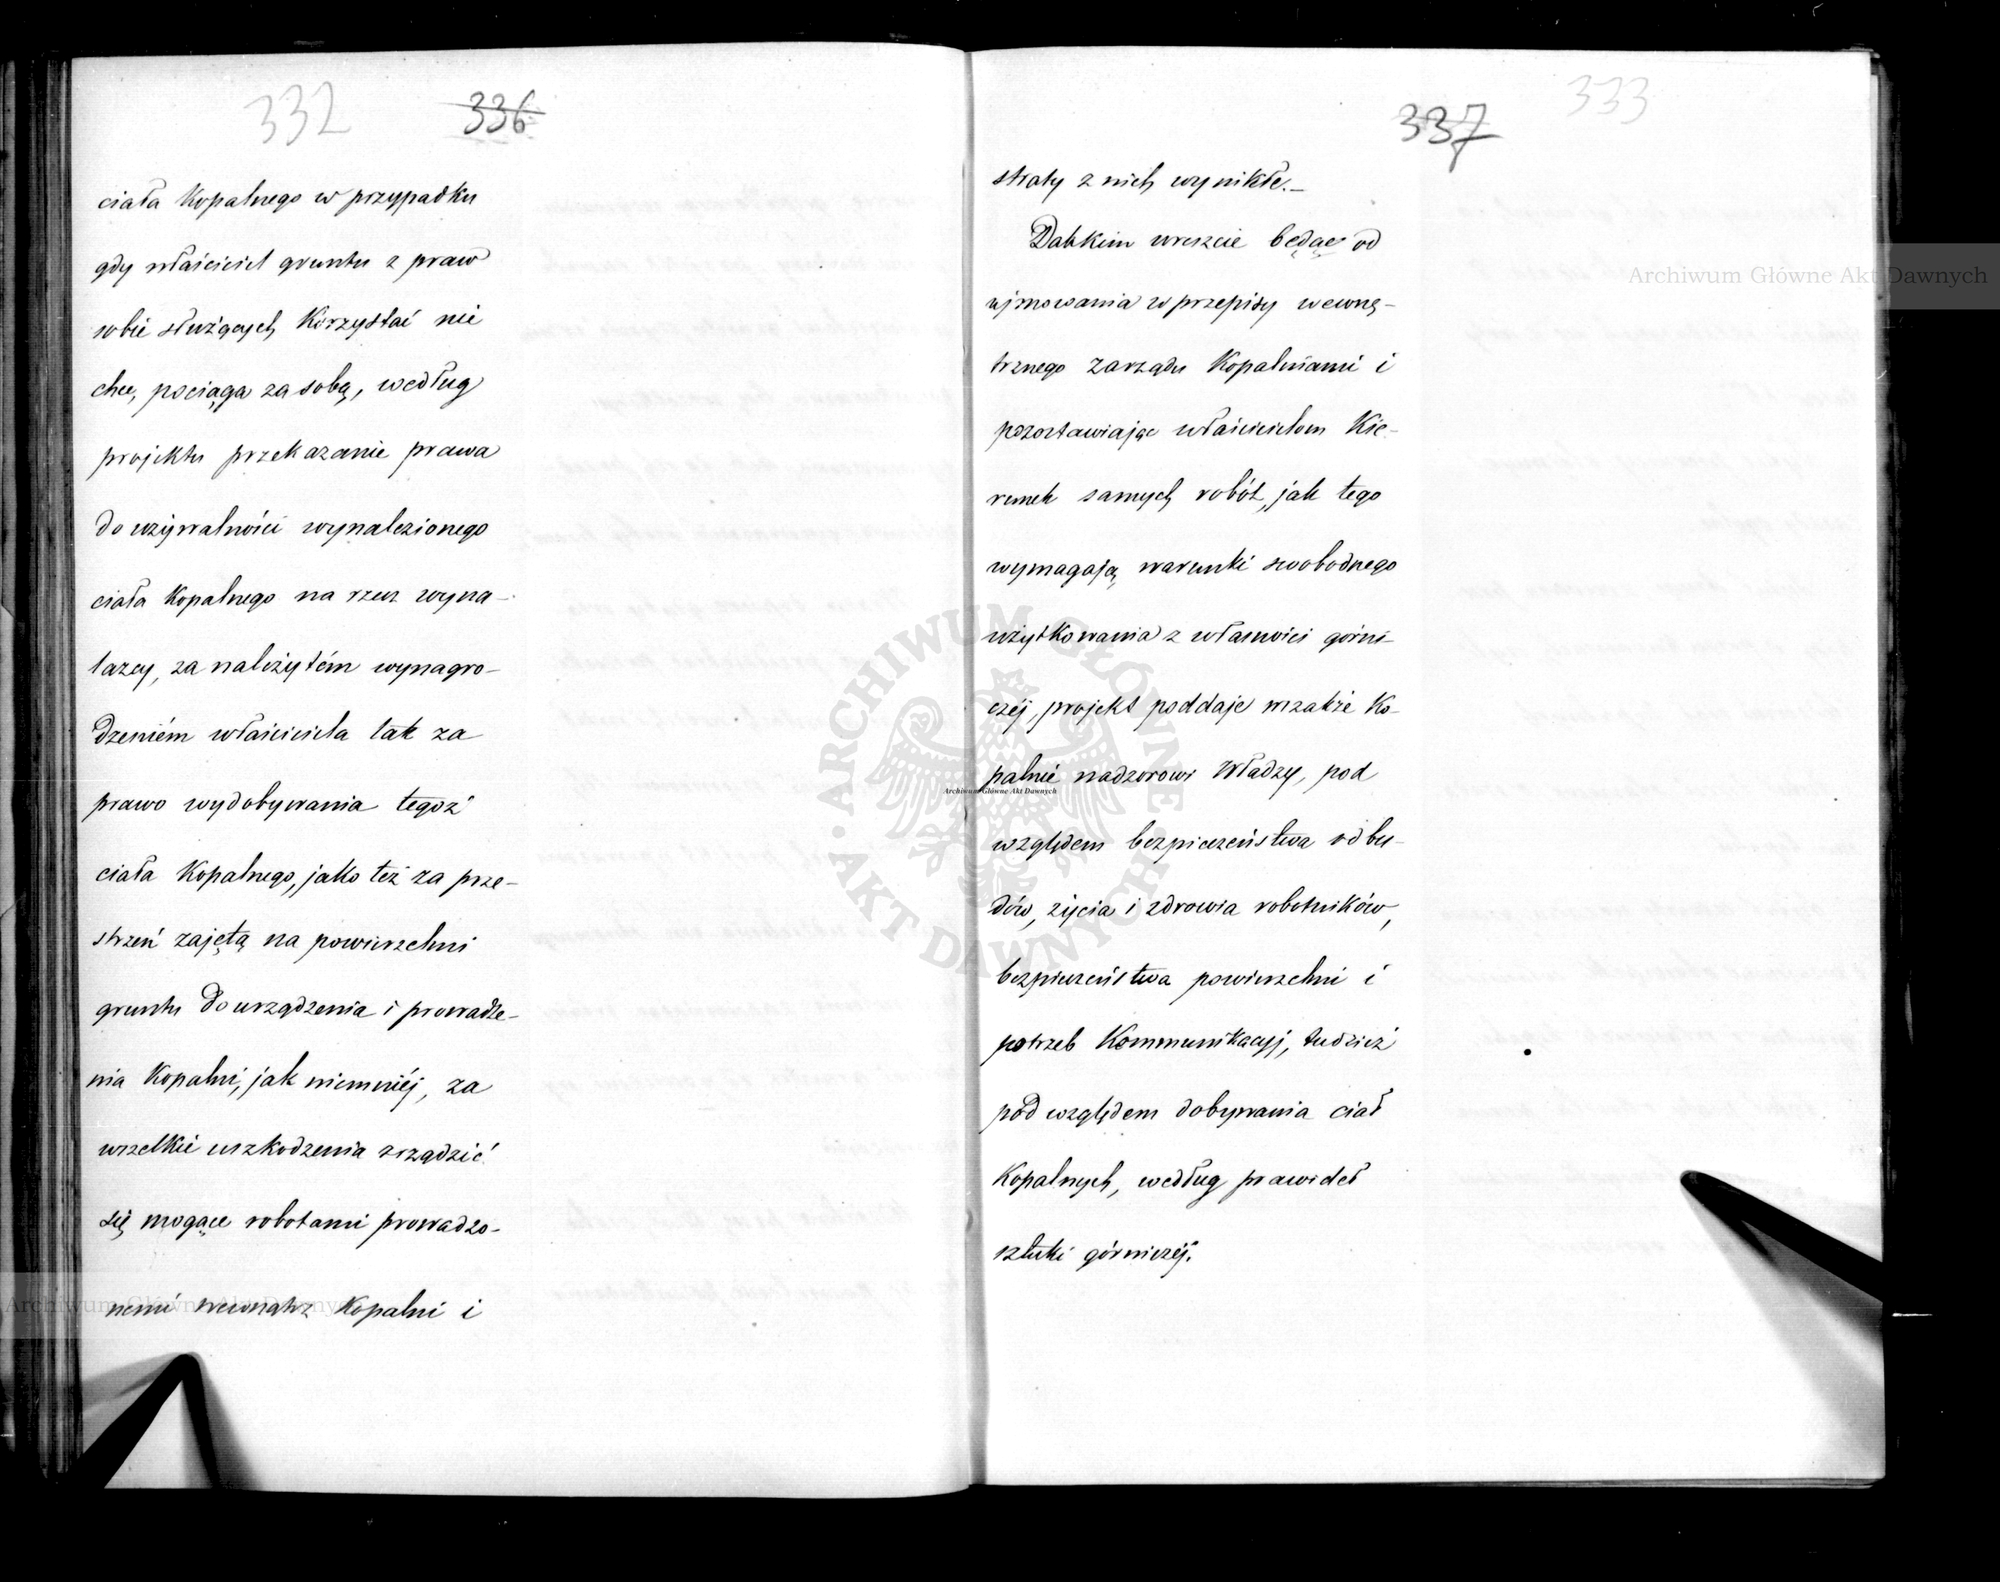 332 336
ciała Kopalnego w przypadku
gdy właściciel gruntu z praw
sobie służących Korzystać nie
chce, pociąga za sobą, według
projektu przekazanie prawa
do używalności wynalezionego
ciała Kopalnego na rzecz wyna-
lazcy, za należytém wynagro-
dzeniém właściciela tak za
prawo wydobywania tegoż
ciała Kopalnego, jako też za prze-
strzeń zajętą na powierzchni
gruntu do urządzenia i prowadze-
nia Kopalni, jak niemniéj, za
wszelkie uszkodzenia zrządzić
się mogące robotami prowadzo-
nemi wewnątrz Kopalni i
337 333
straty z nich wynikłe.
wreszcie będąc od
ujmowania w przepisy wewnę-
trznego Zarządu Kopalniami i
pozostawiając właścicielom Kie-
runek samych robót, jak tego
wymagają warunki swobodnego
użytkowania z własności górni-
czéj, projekt poddaje wszakże Ko-
palnie nadzorowi Władzy, pod
względem bezpieczeństwa odbu-
dów, życia i zdrowia robotników,
bezpieczeństwa powierzchni i
potrzeb Kommunikacyj, tudzież
pod względem dobywania ciał
Kopalnych, według prawideł
sztuki górniczéj.
Archiwum Główne Akt Dawnych
Archiwum Główne Akt Dawnych
Archiwum Główne Akt Dawnych
ARCHIWUM GŁÓWNE AKT DAWNYCH